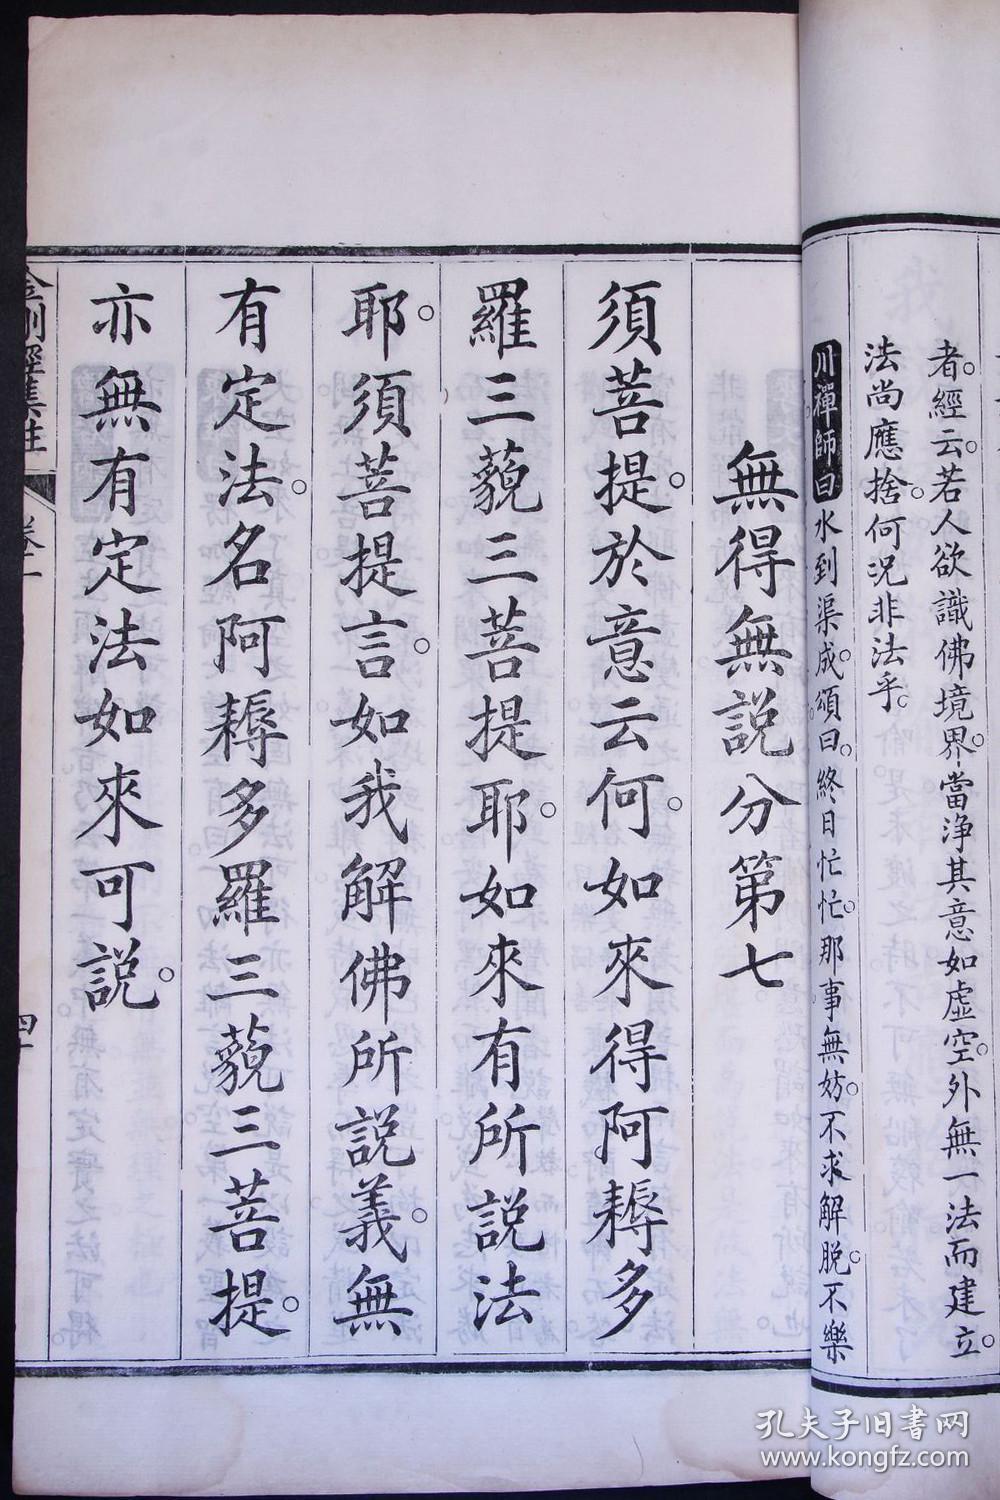 者。經云。若人欲識佛境界。當淨其意如虛空。外無一法而建立。
法尚應捨。何況非法乎。
川禪師曰水到渠成。頌曰。終日忙忙。那事無妨。不求解脫。不樂
無得無説分第七
須菩提。於意云何。如來得阿耨多
羅三藐三菩提耶。如來有所説法
耶。須菩提言。如我解佛所説義。無
有定法。名阿耨多羅三藐三菩提。
亦無有定法如來可説。
金剛經集註
卷一
四十
孔夫子旧書网
www.kongfz.com